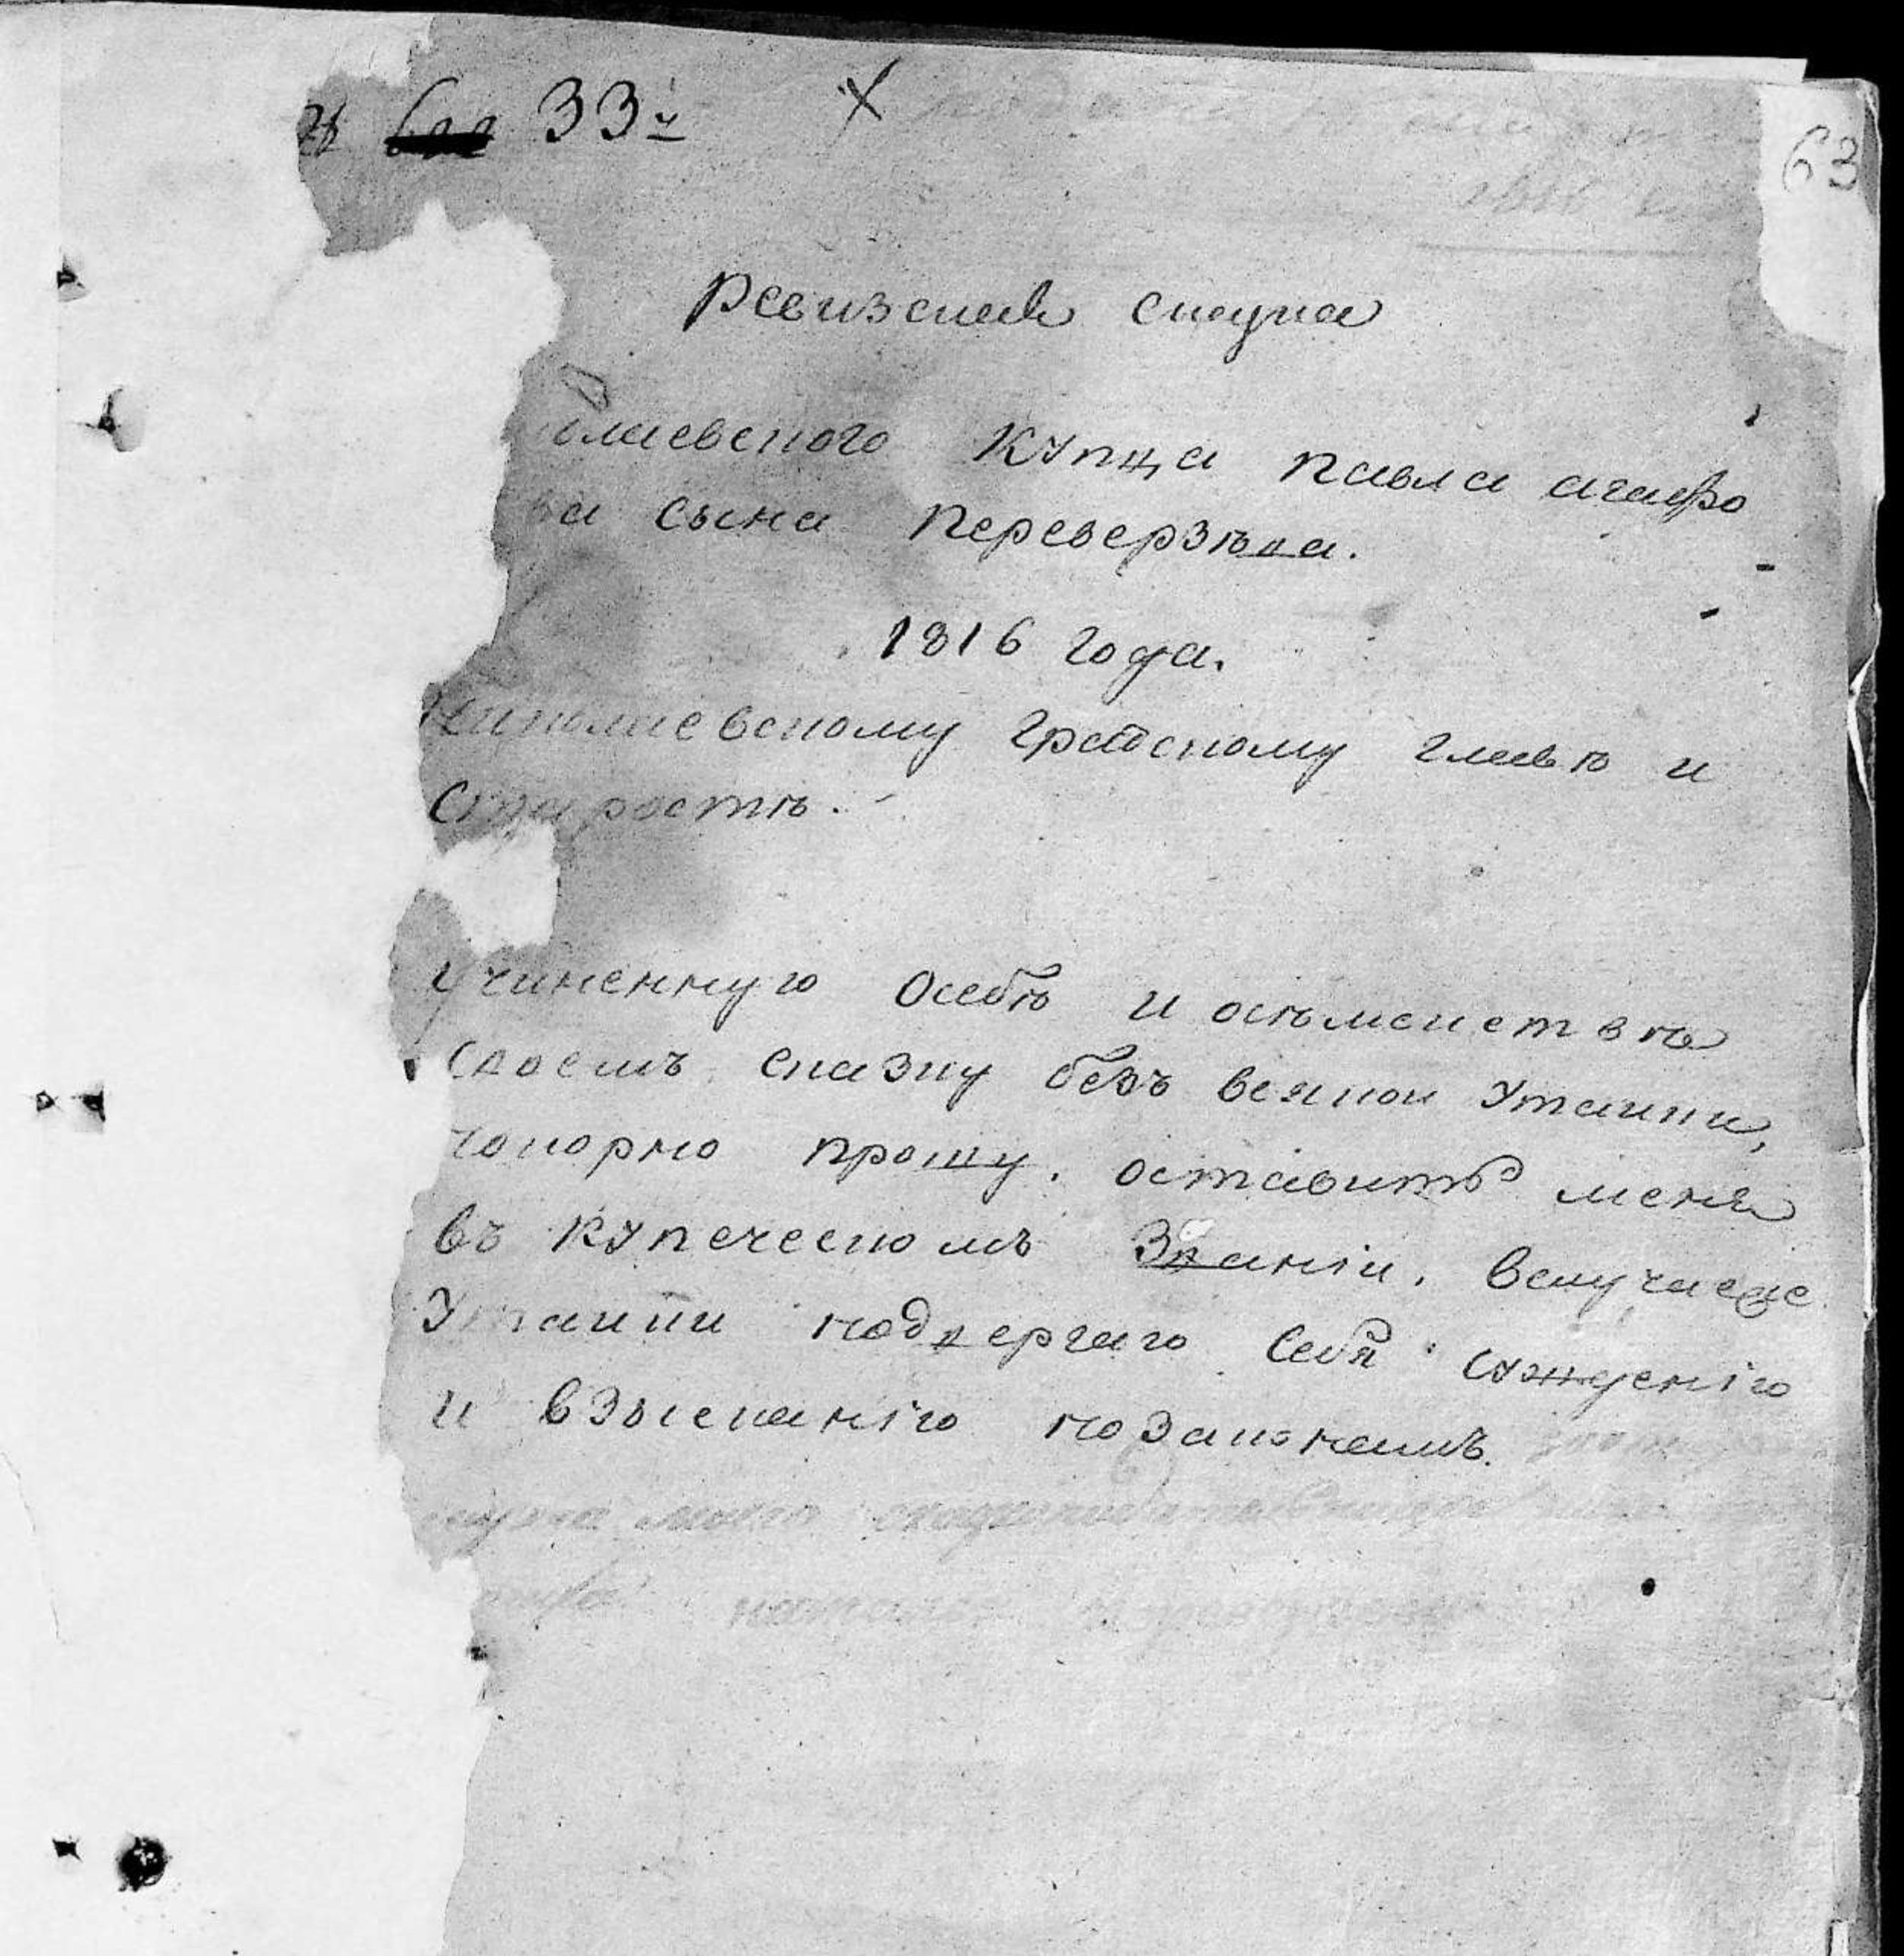 33й
63
Ревизская скаска
лаевского купца павла агафо
ва сына Переверзѣва.
1816 года.
Николаевскому градскому главѣ и
Старостѣ.
учиненную осебѣ и осѣмействѣ
своемъ сказку безъ всякои утаики,
покорно прошу. оставить меня
въ купеческомъ званіи, вслучаеже
Утаики подвергаю себя сужденію
и взысканію позаконамъ.